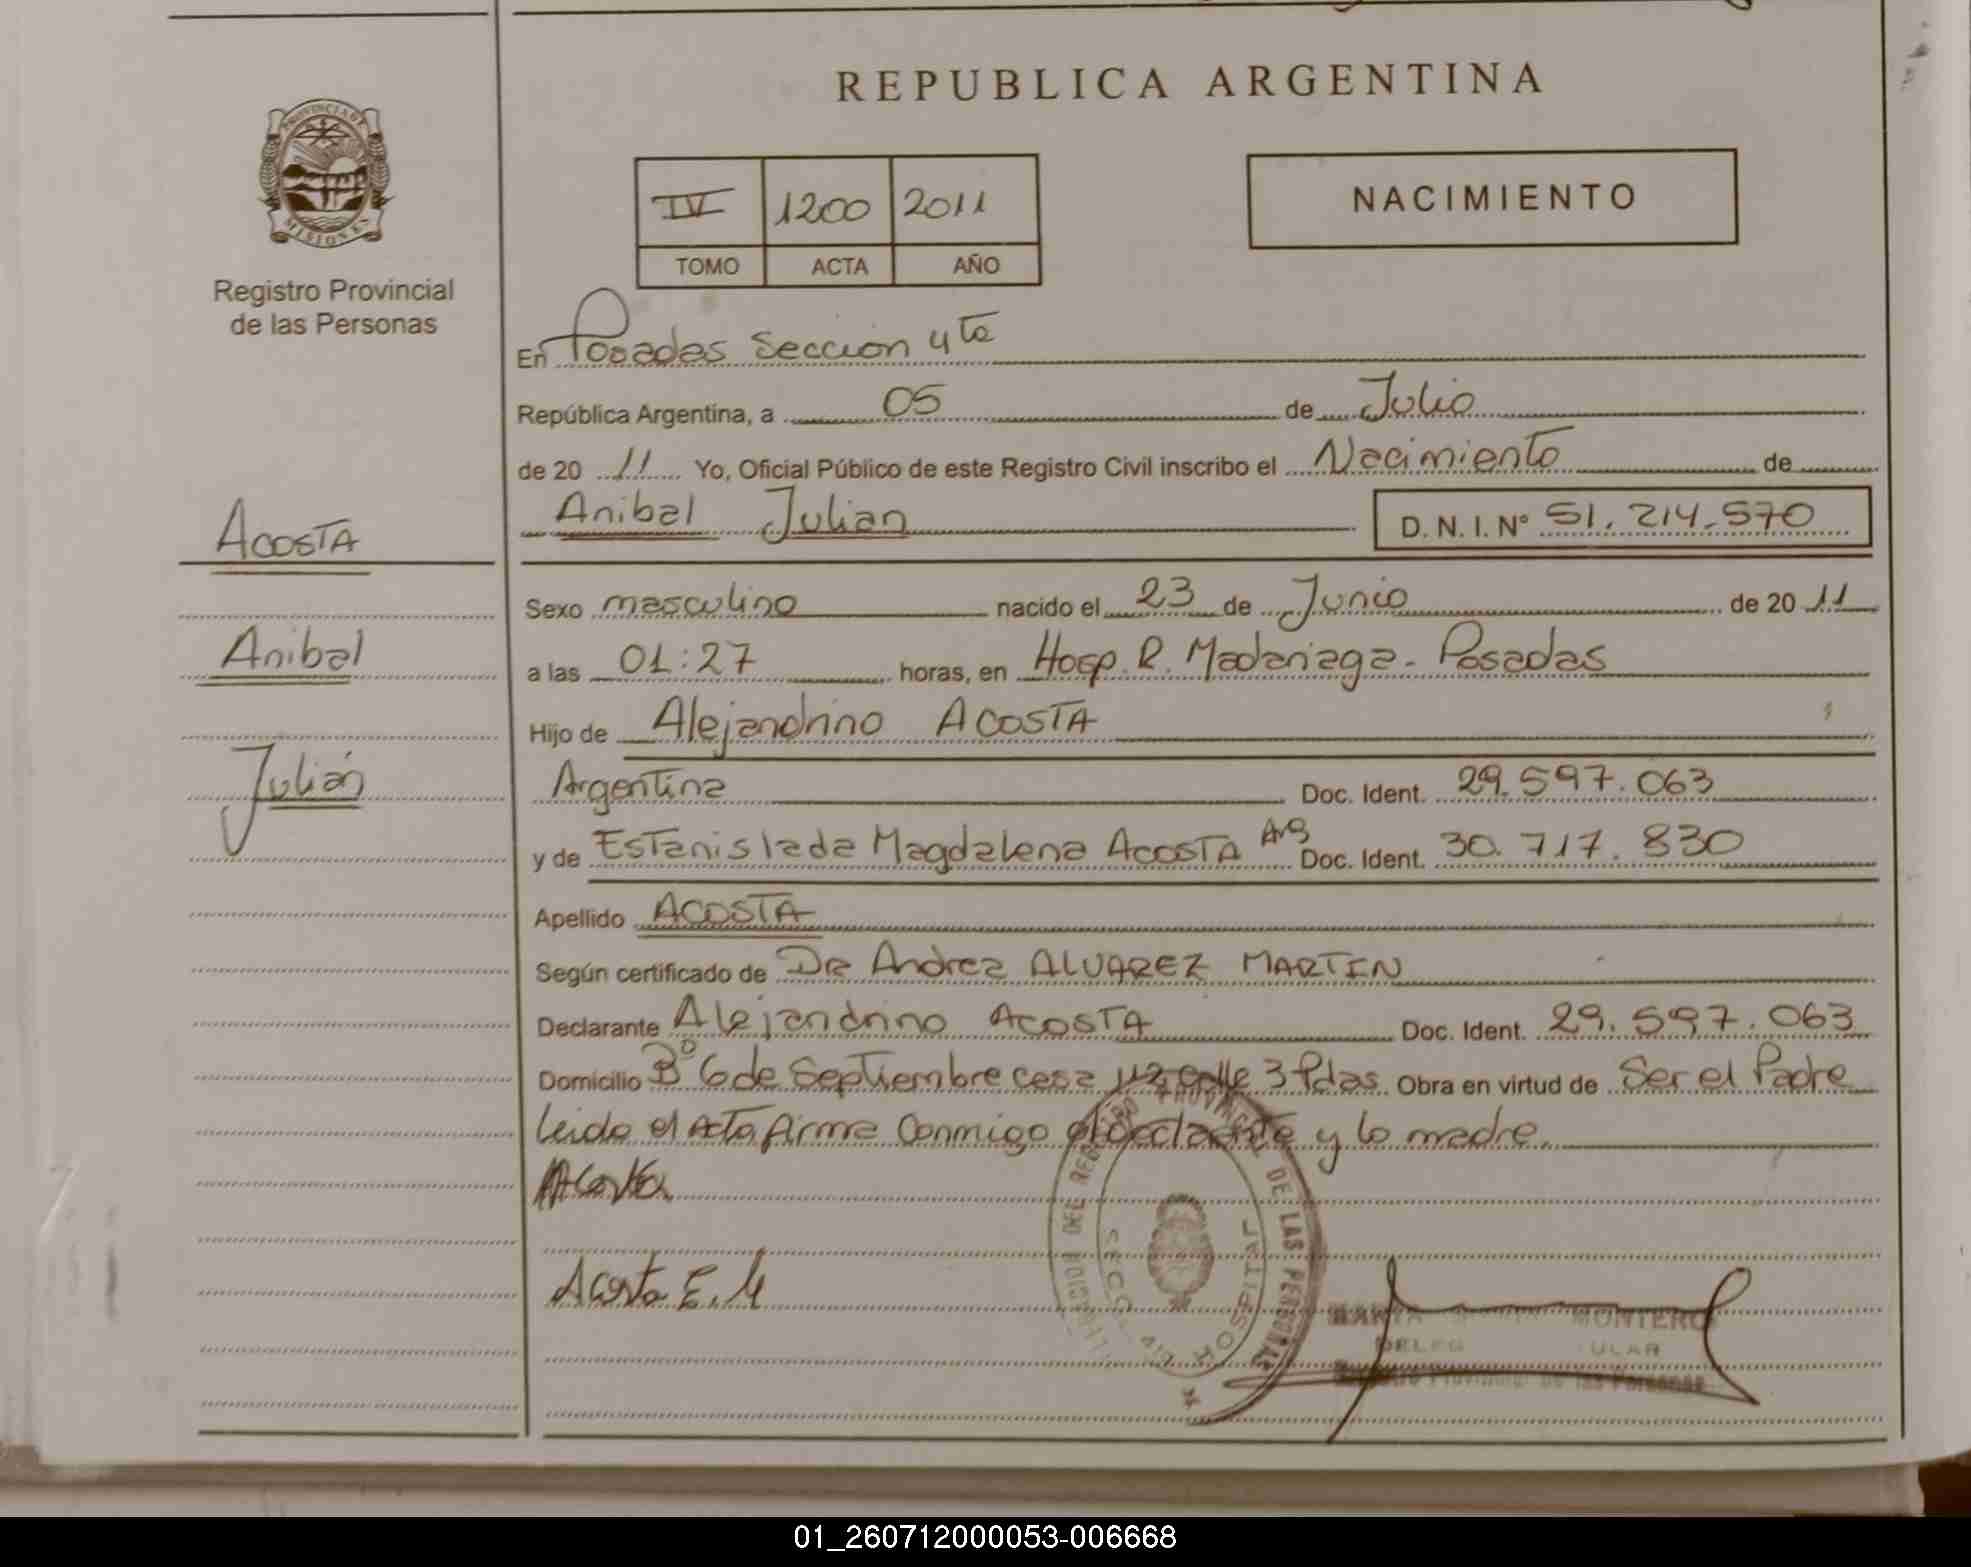 REPUBLICA ARGENTINA
PROVINCIA DE
MISIONES
Registro Provincial
de las Personas
IV 1200 2011
TOMO ACTA AÑO
NACIMIENTO
En Posadas Sección 4ta
República Argentina, a 05 de Julio
de 20 11 Yo, Oficial Público de este Registro Civil inscribo el Nacimiento de
Anibal Julian D. N. I. Nº 51.214.570
ACOSTA
Anibal
Julián
Sexo masculino nacido el 23 de Junio de 20 11
a las 01:27 horas, en Hosp. R. Madariaga - Posadas
Hijo de Alejandrino ACOSTA
Argentina Doc. Ident. 29.597.063
y de Estanislada Magdalena ACOSTA Arg Doc. Ident. 30.717.830
Apellido ACOSTA
Según certificado de DR Andrez ALVAREZ MARTIN
Declarante Alejandrino ACOSTA Doc. Ident. 29.597.063
Domicilio Bº 6 de Septiembre casa calle 3 Pdas. Obra en virtud de Ser el Padre
leido el Acta firma conmigo el declarante y la madre.
Acosta
Acosta E. M
REGISTRO PROVINCIAL DE LAS PERSONAS
SECC. 4ta HOSPITAL
MONTERO
Registro Provincial de las Personas
01_260712000053-006668